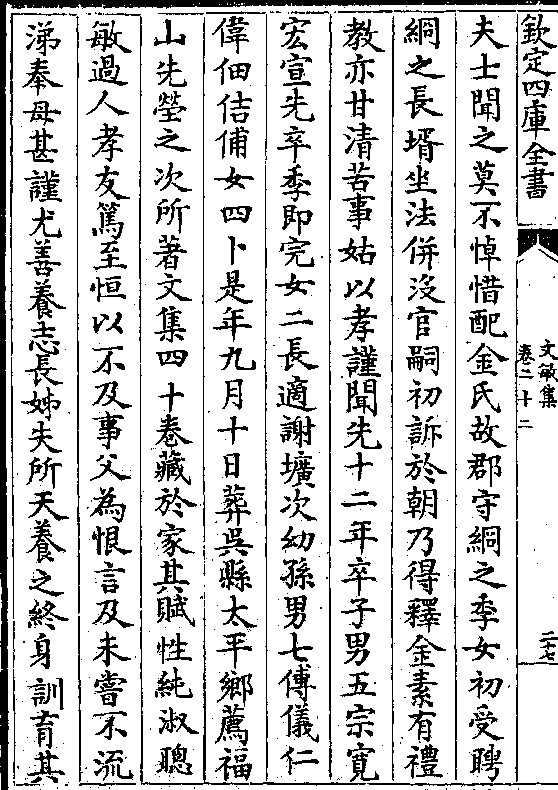 欽定四庫全書
文敏集
卷二十二
二十七
夫士聞之莫不悼惜配金氏故郡守絅之季女初受聘
絅之長壻坐法併沒官嗣初訴於朝乃得釋金素有禮
教亦甘清苦事姑以孝謹聞先十二年卒子男五宗寛
宏宣先卒季即完女二長適謝壙次幼孫男七傅儀仁
偉佃佶俌女四卜是年九月十日葬吳縣太平鄉薦福
山先塋之次所著文集四十卷藏於家其賦性純淑聰
敏過人孝友篤至恒以不及事父為恨言及未嘗不流
涕奉母甚謹尤善養志長姊夫所天養之終身訓育其